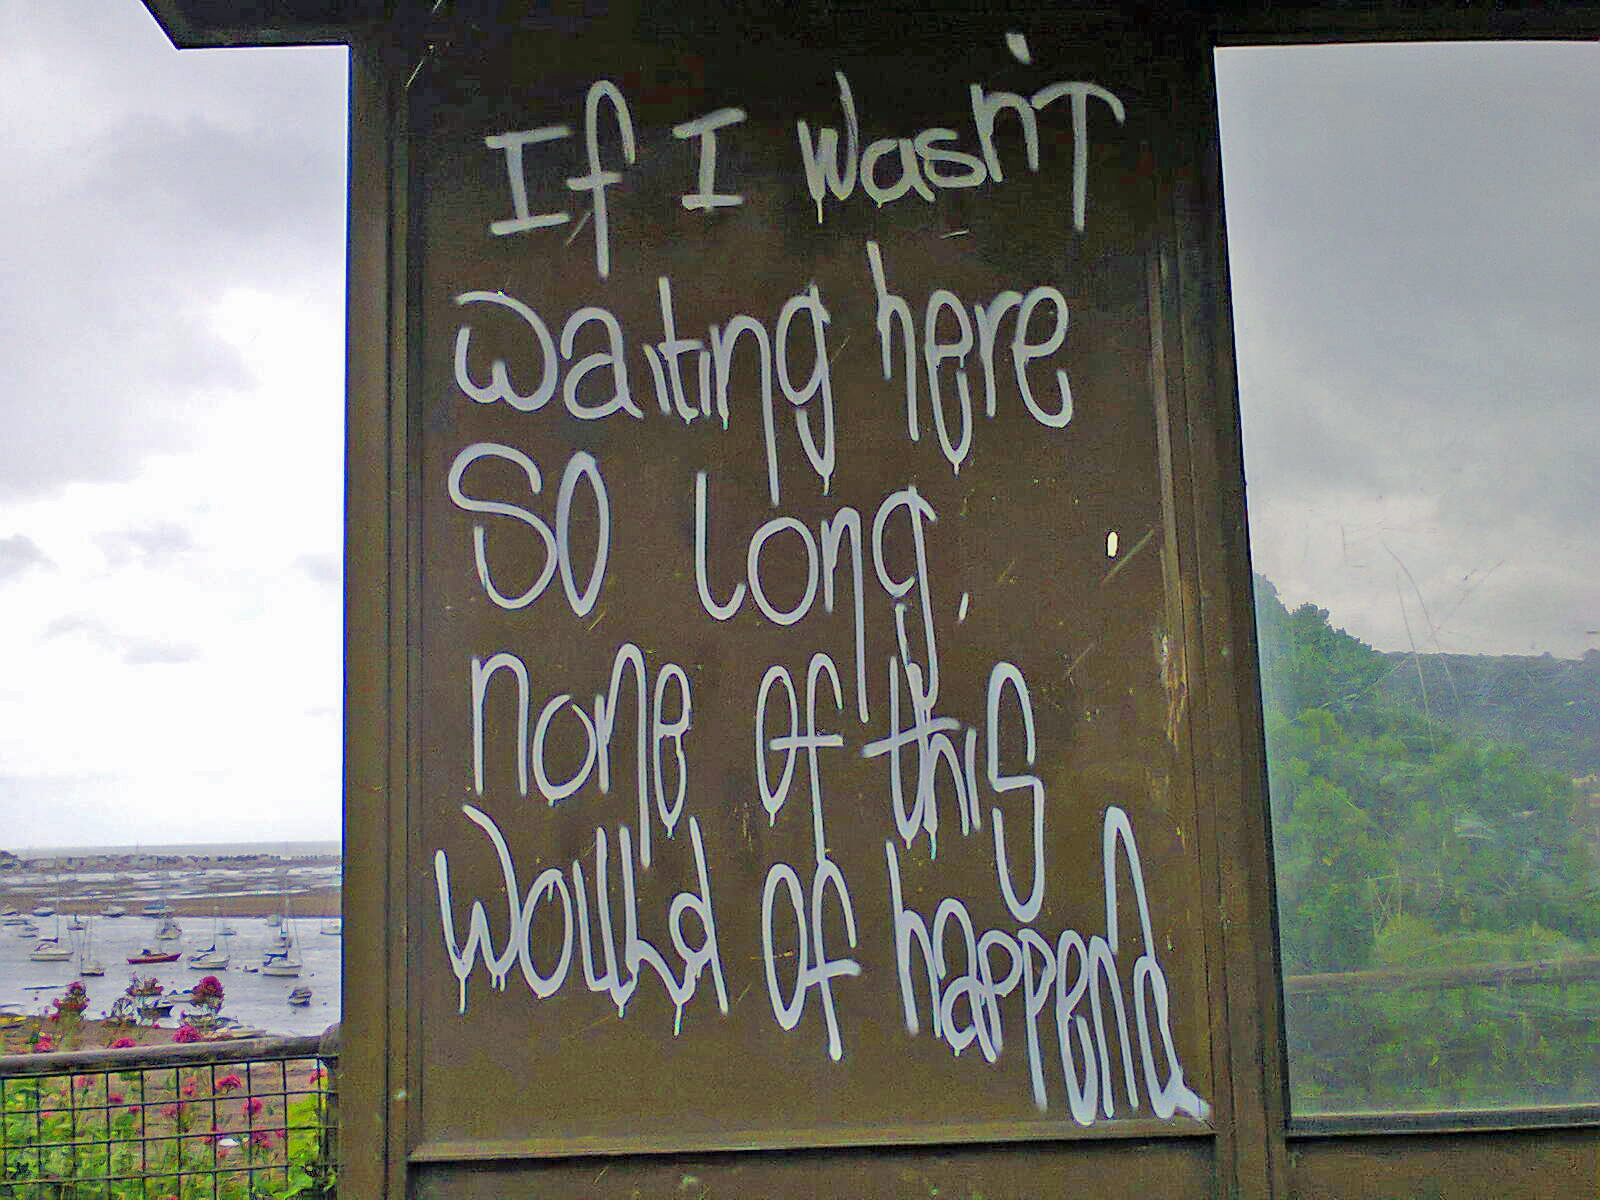 If I wasn't
waiting here
so long,
none of this
would of happend